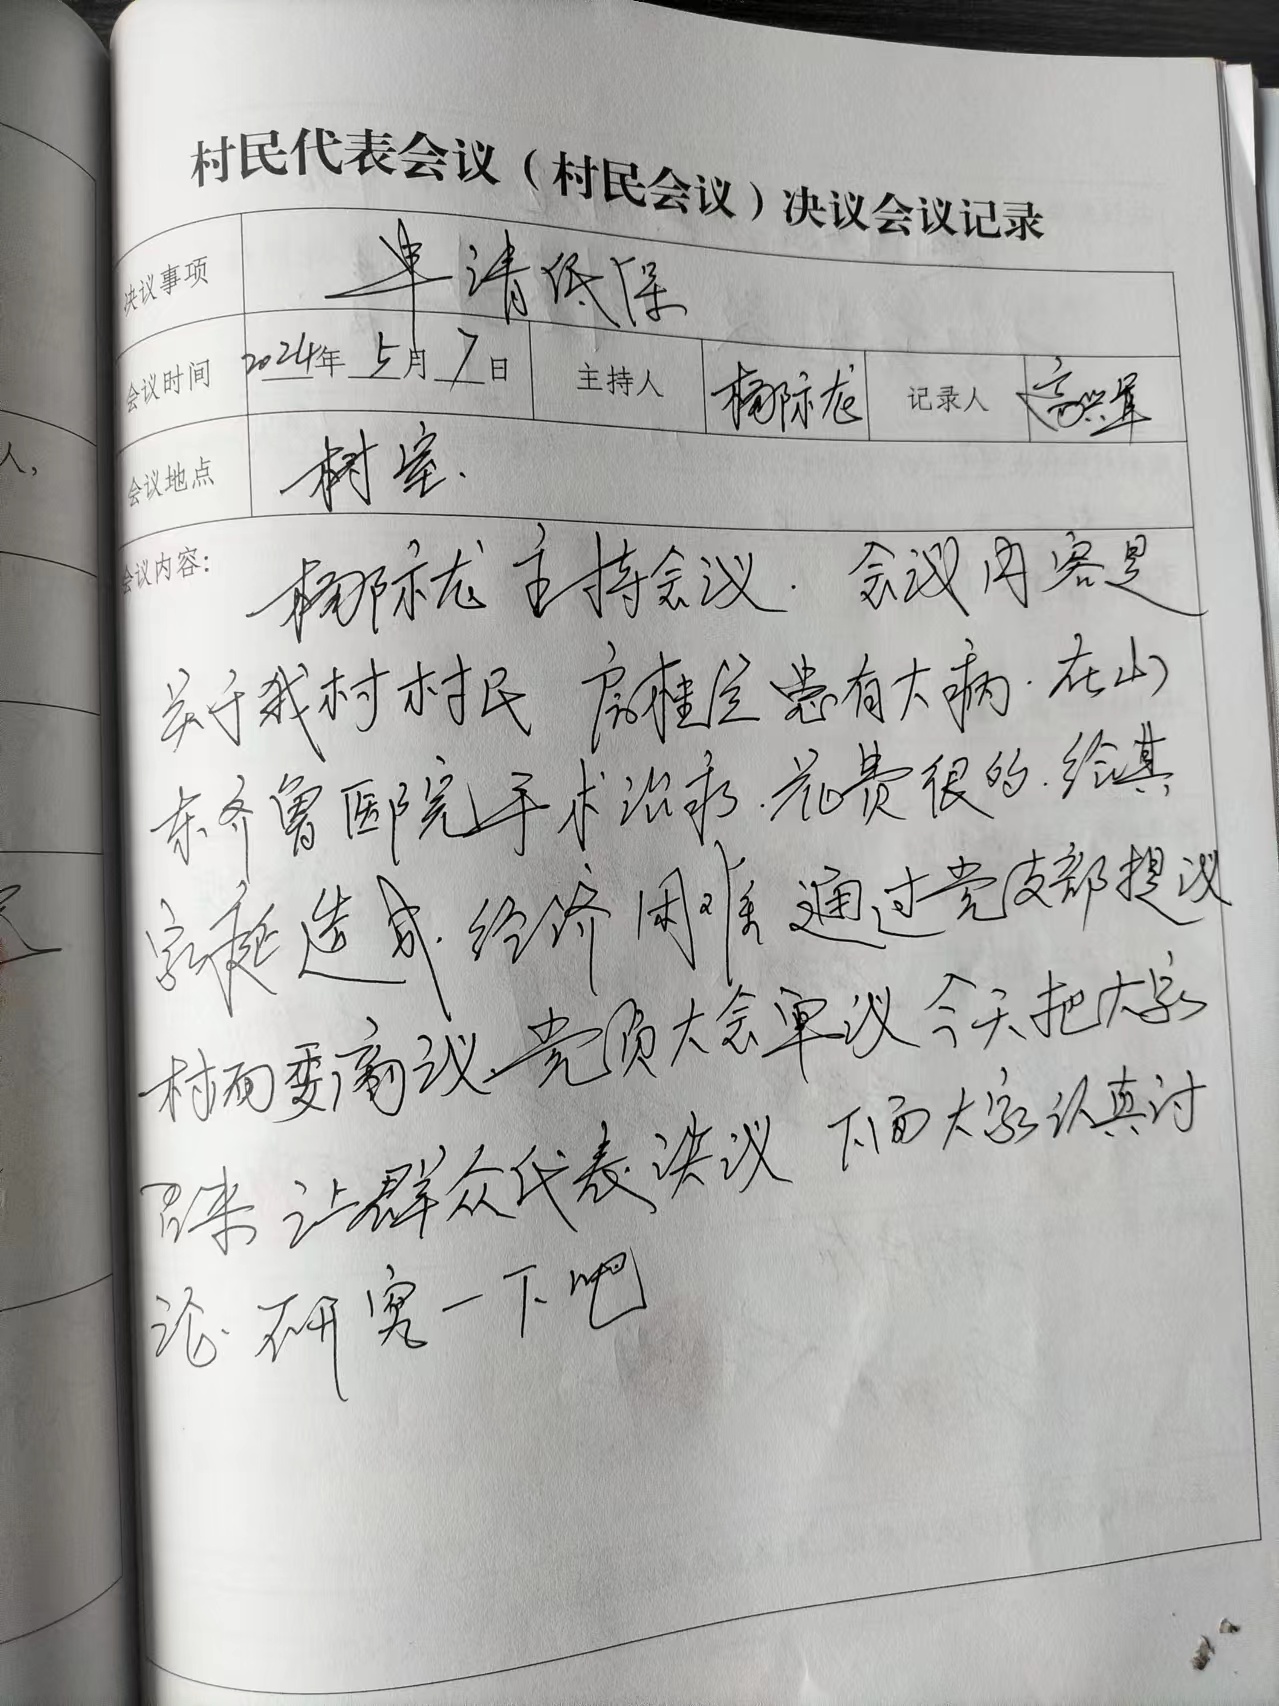 村民代表会议（村民会议）决议会议记录
决议事项 申请低保
会议时间 2024年 5月 7日 主持人 记录人
会议地点 村室.
会议内容: 主持会议. 会议内容是
关于我村村民 患有大病.在山
东齐鲁医院手术治疗.花费很的.给其
家庭造成.经济困难 通过党支部提议
村两委商议.党员大会审议 今天把大家
召来 让群众代表决议 下面大家认真讨
论.研究一下吧
人,